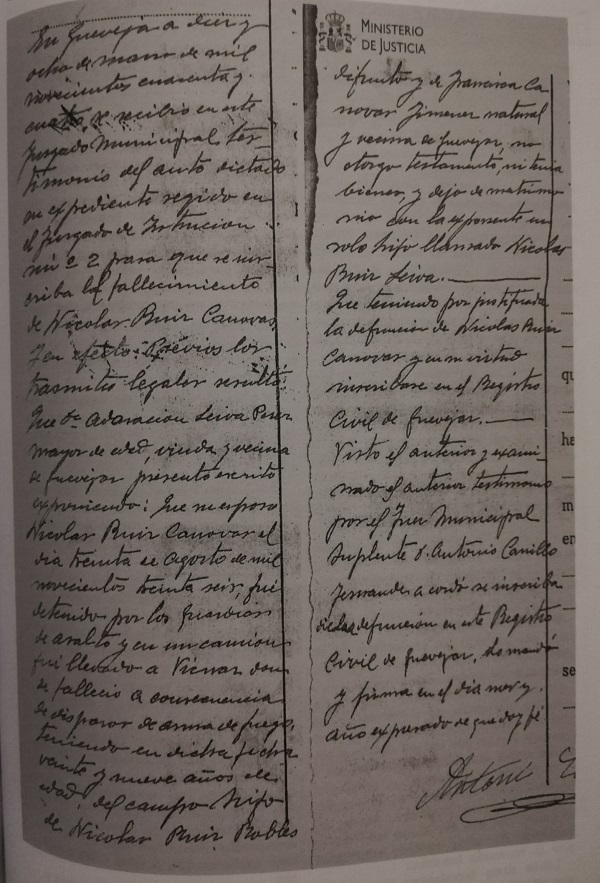 En Güevejar a diez y
ocho de marzo de mil
novecientos cuarenta y
cuatro se recibio en este
Juzgado Municipal tes-
timonio del auto dictado
en expediente seguido en
el Juzgado de Instrucion
nú º 2 para que se ins-
criba el fallecimiento
de Nicolas Ruiz Canovas
Y en efecto: Previos los
trasmites legales resultó:
Que Dª Adoracion Leiva Perez
mayor de edad, viuda y vecina
de Guevejar presento escrito
exponiendo: Que su esposo
Nicolas Ruiz Canovas el
dia treinta de Agosto de mil
novecientos treinta seis fué
detenido por los guardias
de asalto y en un camion
fué llevado a Viznar don-
de fallecio a consecuencia
de disparos de arma de fuego,
teniendo en dicha fecha
veinte y nueve años de
edad, del campo hijo
de Nicolas Ruiz Robles
MINISTERIO
DE JUSTICIA
difunto y de Francisca Ca
novas Jimenez natural
y vecina de Guevejar, no
otorgo testamento, ni tenia
bienes, y dejo de matrimo
nio con la exponente un
solo hijo llamado Nicolas
Ruiz Leiva.
Que teniendo por justificada
la defuncion de Nicolas Ruiz
Canovas y en su virtud
inscribase en el Registro
Civil de Guevejar.
Visto el anterior y exami-
nado el anterior testimonio
por el Juez Municipal
Suplente D. Antonio Carrillo
Fernandez acordó se inscriba
dicha defuncion en este Registro
Civil de Guevejar. Lo mandó
y firma en el dia mes y
año expresado de que doy fé
Antoni
qu
ha
m
en
se